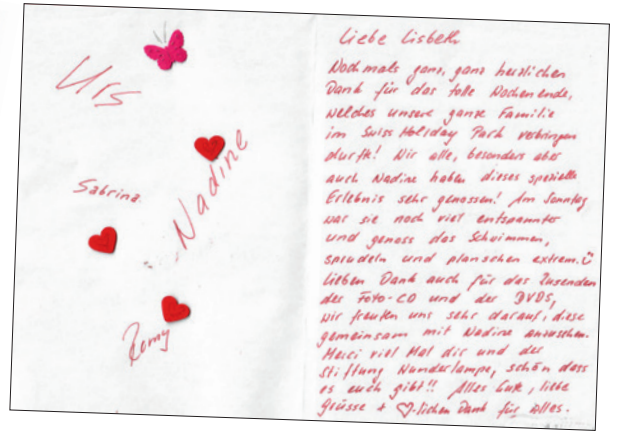 Urs
Nadine
Sabrina
Remy
Liebe Lisbeth
Nochmals ganz, ganz herzlichen
Dank für das tolle Wochenende,
welches unsere ganze Familie
im Swiss Holiday Park verbringen
durfte! Wir alle, besonders aber
auch Nadine haben dieses spezielle
Erlebnis sehr genossen! Am Sonntag
war sie noch viel entspannter
und genoss das Schwimmen,
sprudeln und planschen extrem.
Lieben Dank auch für das Zusenden
der Foto-CD und der DVDs,
wir freuten uns sehr darauf, diese
gemeinsam mit Nadine anzusehen.
Merci viel Mal dir und der
Stiftung Wunderlampe, schön dass
es euch gibt!! Alles Gute, liebe
Grüsse + ♡-lichen Dank für alles.